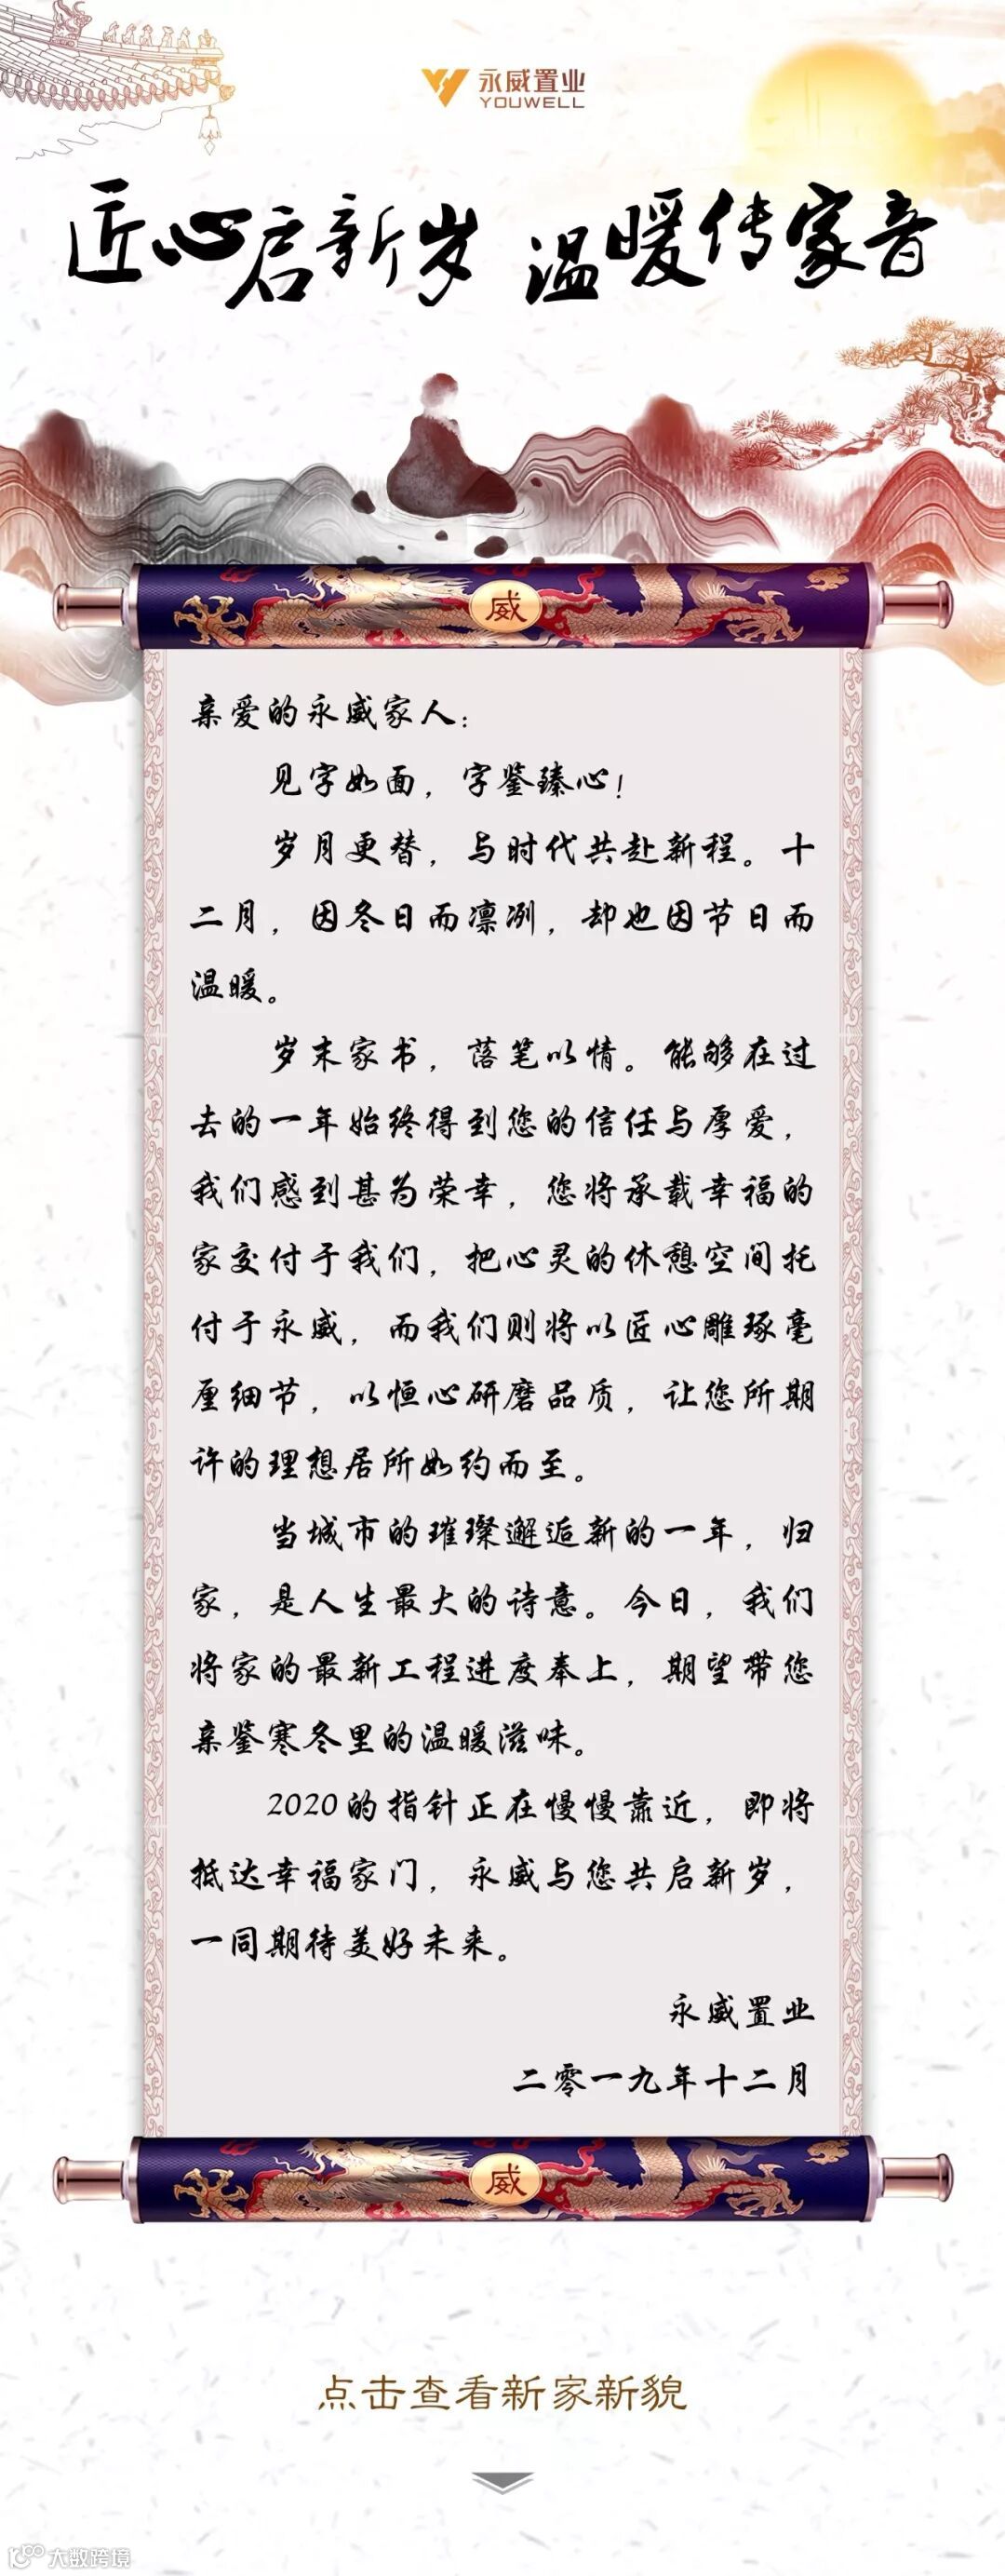 永威置业
YOUWELL
匠心启新岁 温暖传家音
威
亲爱的永威家人：
见字如面，字鉴臻心！
岁月更替，与时代共赴新程。十
二月，因冬日而凛冽，却也因节日而
温暖。
岁末家书，落笔以情。能够在过
去的一年始终得到您的信任与厚爱，
我们感到甚为荣幸，您将承载幸福的
家交付于我们，把心灵的休憩空间托
付于永威，而我们则将以匠心雕琢毫
厘细节，以恒心研磨品质，让您所期
许的理想居所如约而至。
当城市的璀璨邂逅新的一年，归
家，是人生最大的诗意。今日，我们
将家的最新工程进度奉上，期望带您
亲鉴寒冬里的温暖滋味。
2020的指针正在慢慢靠近，即将
抵达幸福家门，永威与您共启新岁，
一同期待美好未来。
永威置业
二零一九年十二月
威
点击查看新家新貌
大数跨境